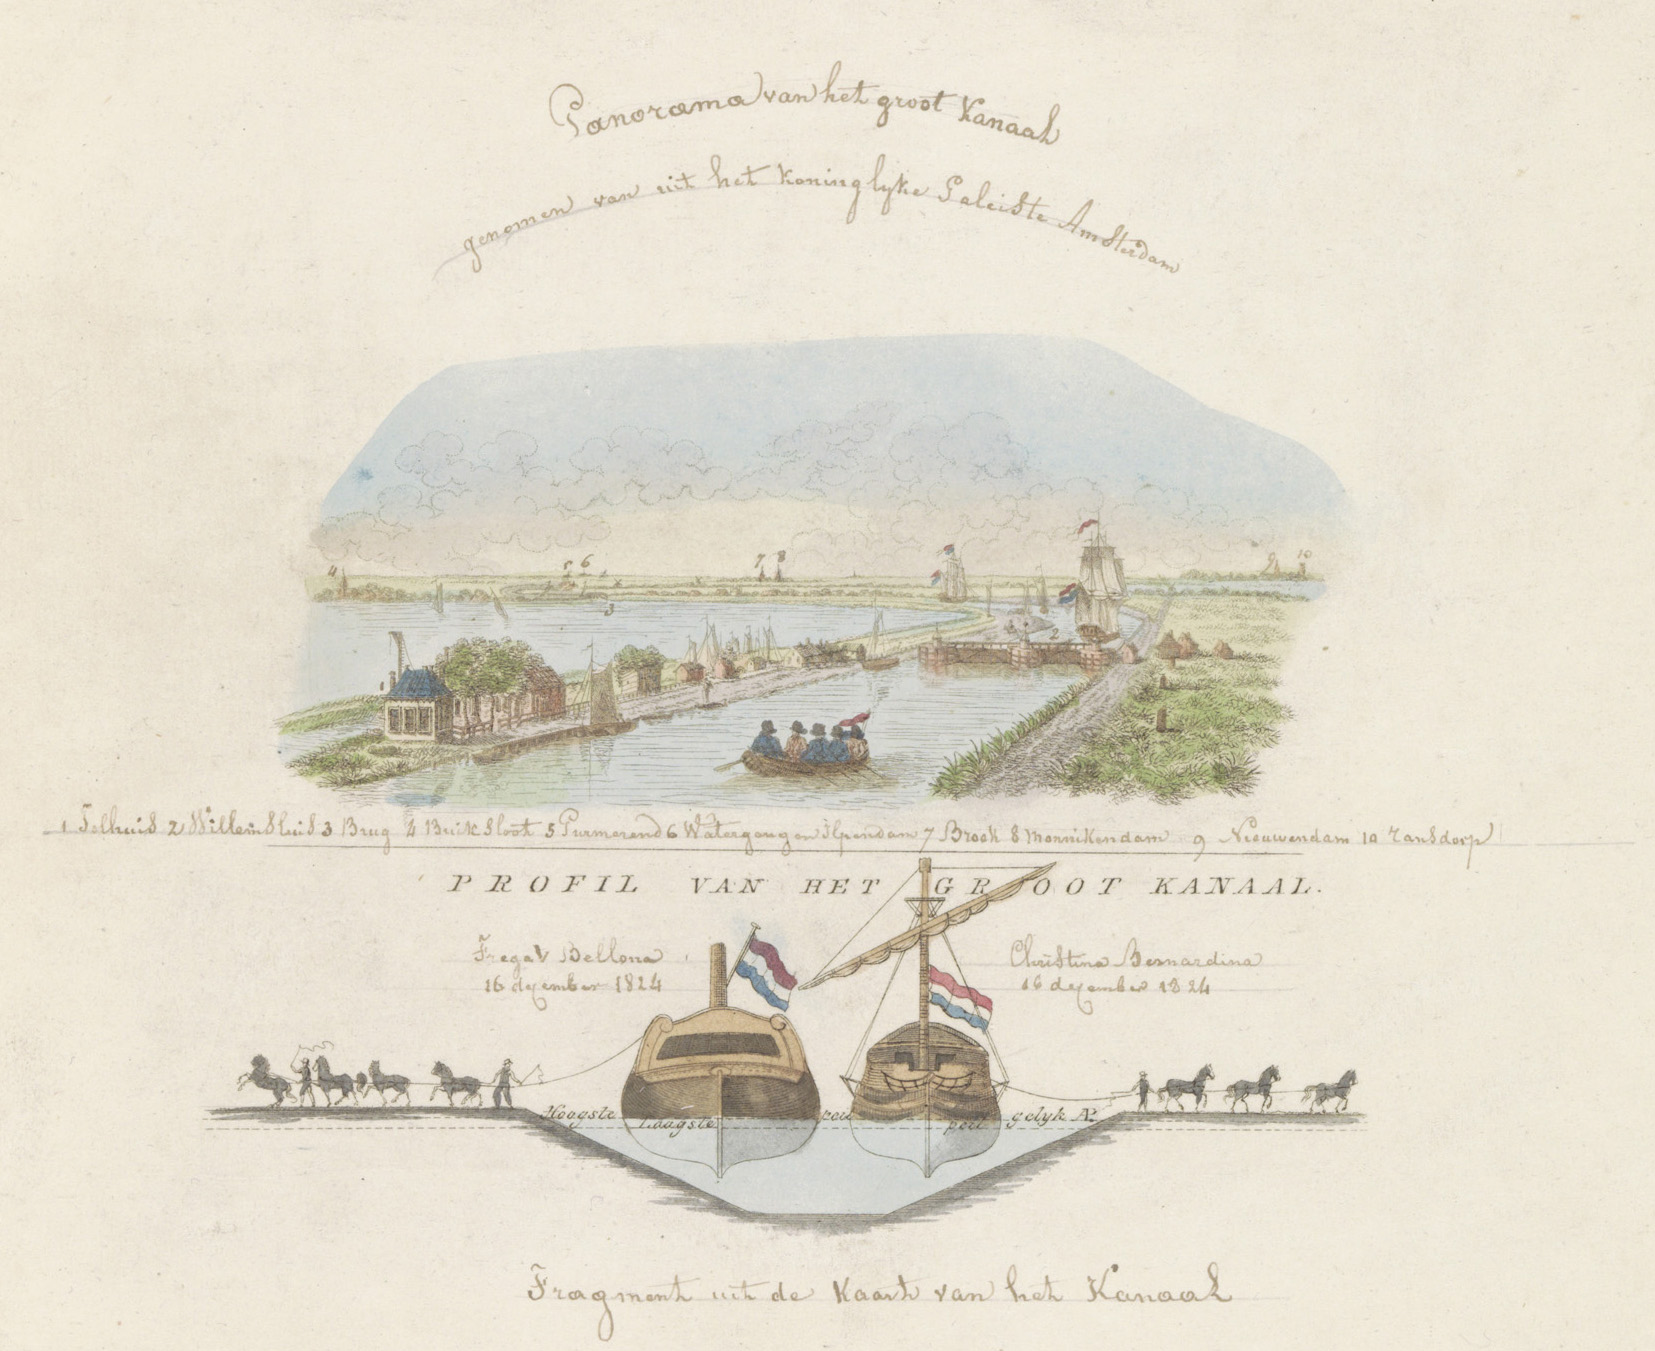 Panorama van het groot Kanaal
genomen van uit het Koninglyke Paleis te Amsterdam
4
5 6
7 8
9 10
3
2
1
1 Tolhuis 2 Willem Sluis 3 Brug 4 Buik Sloot 5 Purmerend 6 Watergang en Ilpendam 7 Broek 8 Monnikendam 9 Nieuwendam 10 Ransdorp
PROFIL VAN HET GROOT KANAAL.
Fregat Bellona
16 december 1824
Christina Bernardina
16 december 1824
Hoogste peil gelyk AP.
Laagste peil
Fragment uit de Kaart van het Kanaal